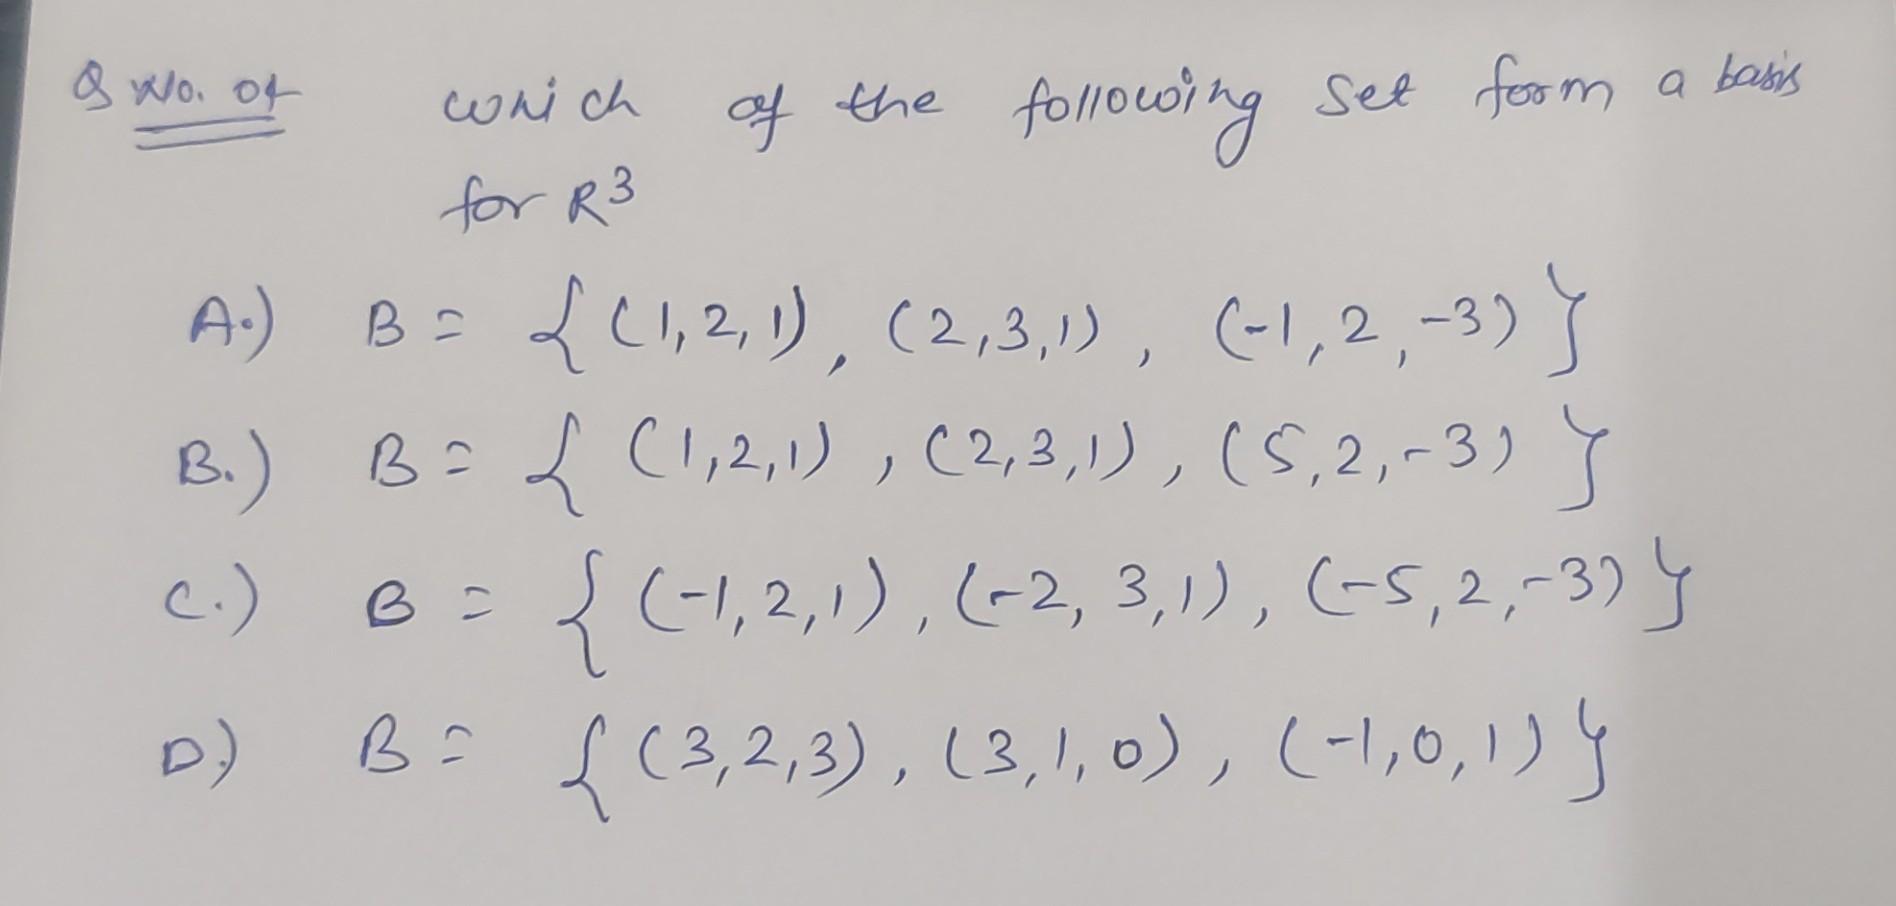 Q No. 04 which of the following set form a basis
for R³
A.) B = {(1,2,1), (2,3,1), (-1,2,-3)}
B.) B = {(1,2,1), (2,3,1), (5,2,-3)}
C.) B = {(-1,2,1), (-2,3,1), (-5,2,-3)}
D.) B = {(3,2,3), (3,1,0), (-1,0,1)}